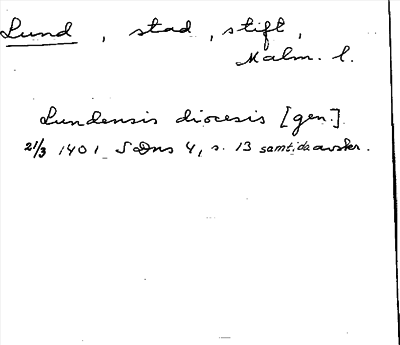 Lund, stad, stift,
Malm. l.
Lundensis diocesis [gen.]
21/3 1401 SDns 4, s. 13 samtida avskr.